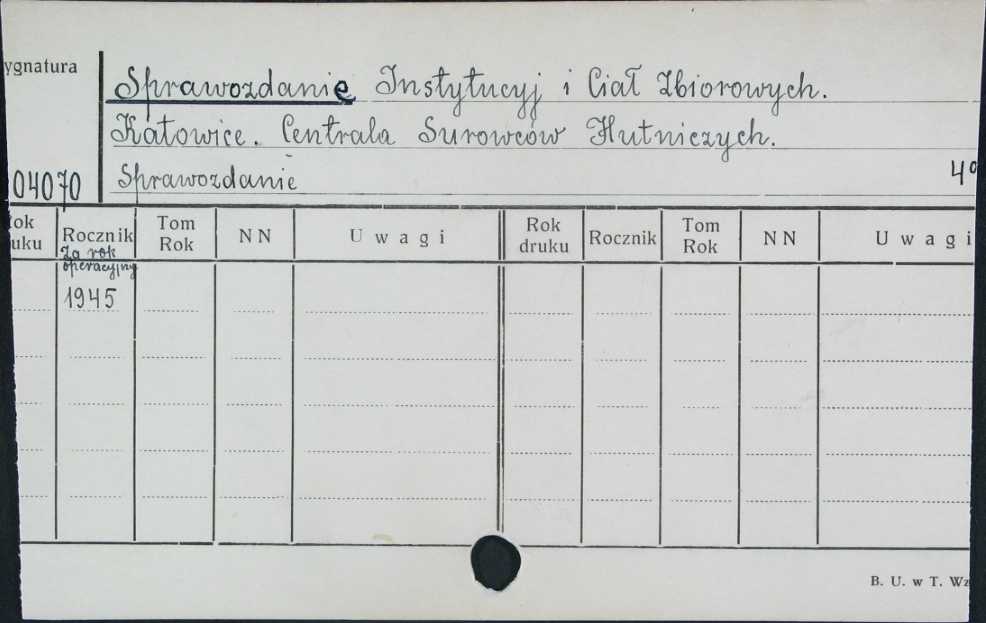 ygnatura
Sprawozdanie Instytucyj i Ciał Zbiorowych.
Katowice. Centrala Surowców Hutniczych.
04070 Sprawozdanie 4º
ok uku Rocznik Tom Rok NN Uwagi Rok druku Rocznik Tom Rok NN Uwagi
Za rok
operacyjny
1945
B. U. w T. Wz